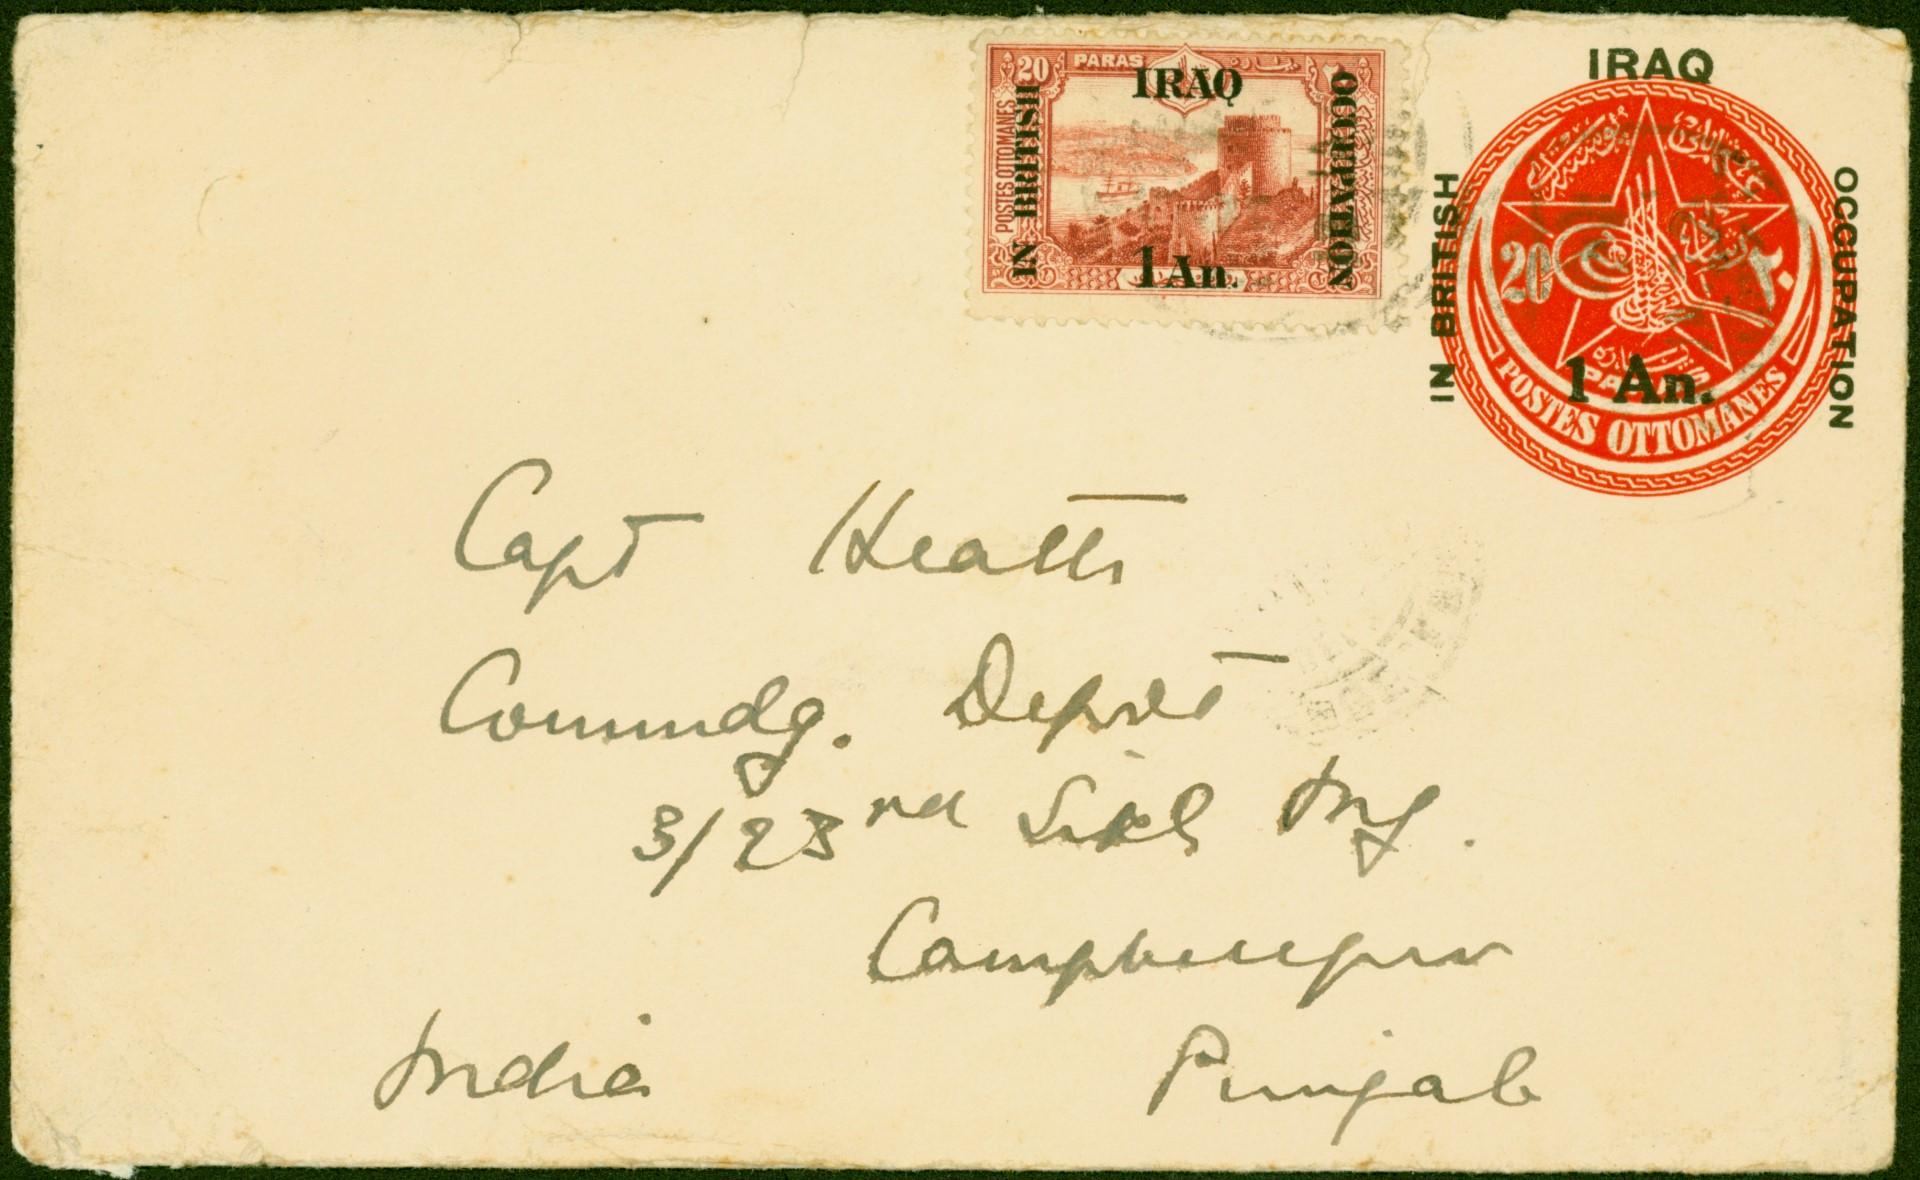 IRAQ
IN BRITISH
OCCUPATION
1 An.
20
POSTES OTTOMANES
20 PARAS
POSTES OTTOMANES
IRAQ
IN BRITISH
OCCUPATION
1 An.
Capt Heath
Commdg. Depot
3/23rd Sikh Inf.
Campbellpur
Punjab
India